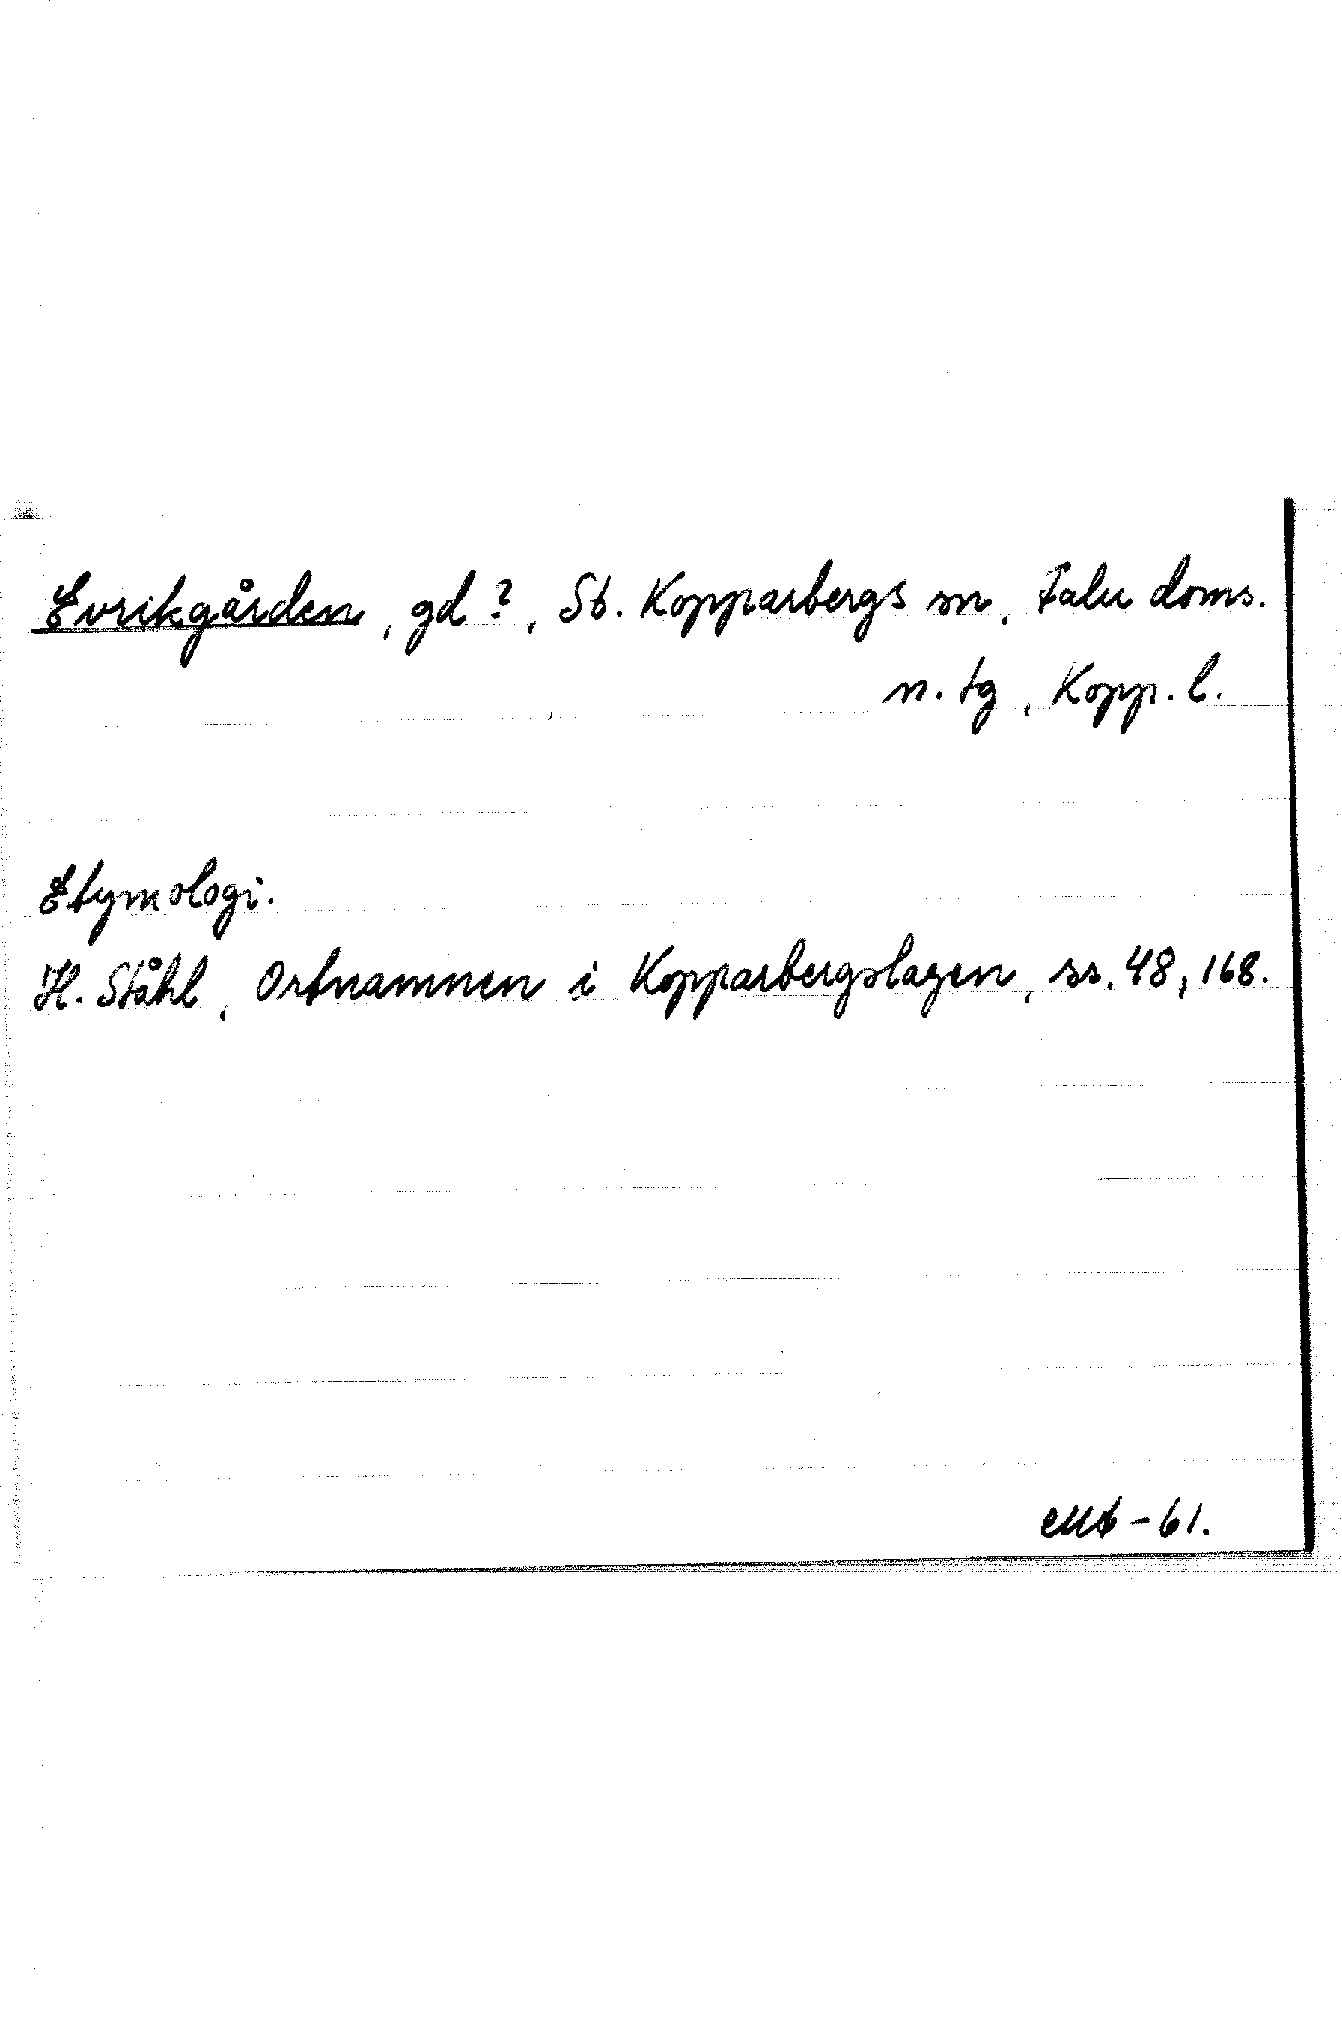 Evrikgården, gd?, St. Kopparbergs sn, Falu doms.
n. tg, Kopp. l.
Etymologi.
H. Ståhl, Ortnamnen i Kopparbergslagen, ss. 48, 168.
-61.